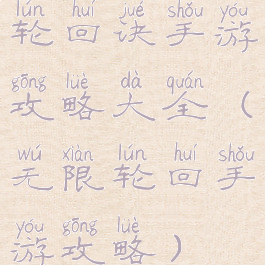 lún huí jué shǒu yóu
轮回诀手游
gōng lüè dà quán
攻略大全（
wú xiàn lún huí shǒu
无限轮回手
yóu gōng lüè
游攻略）